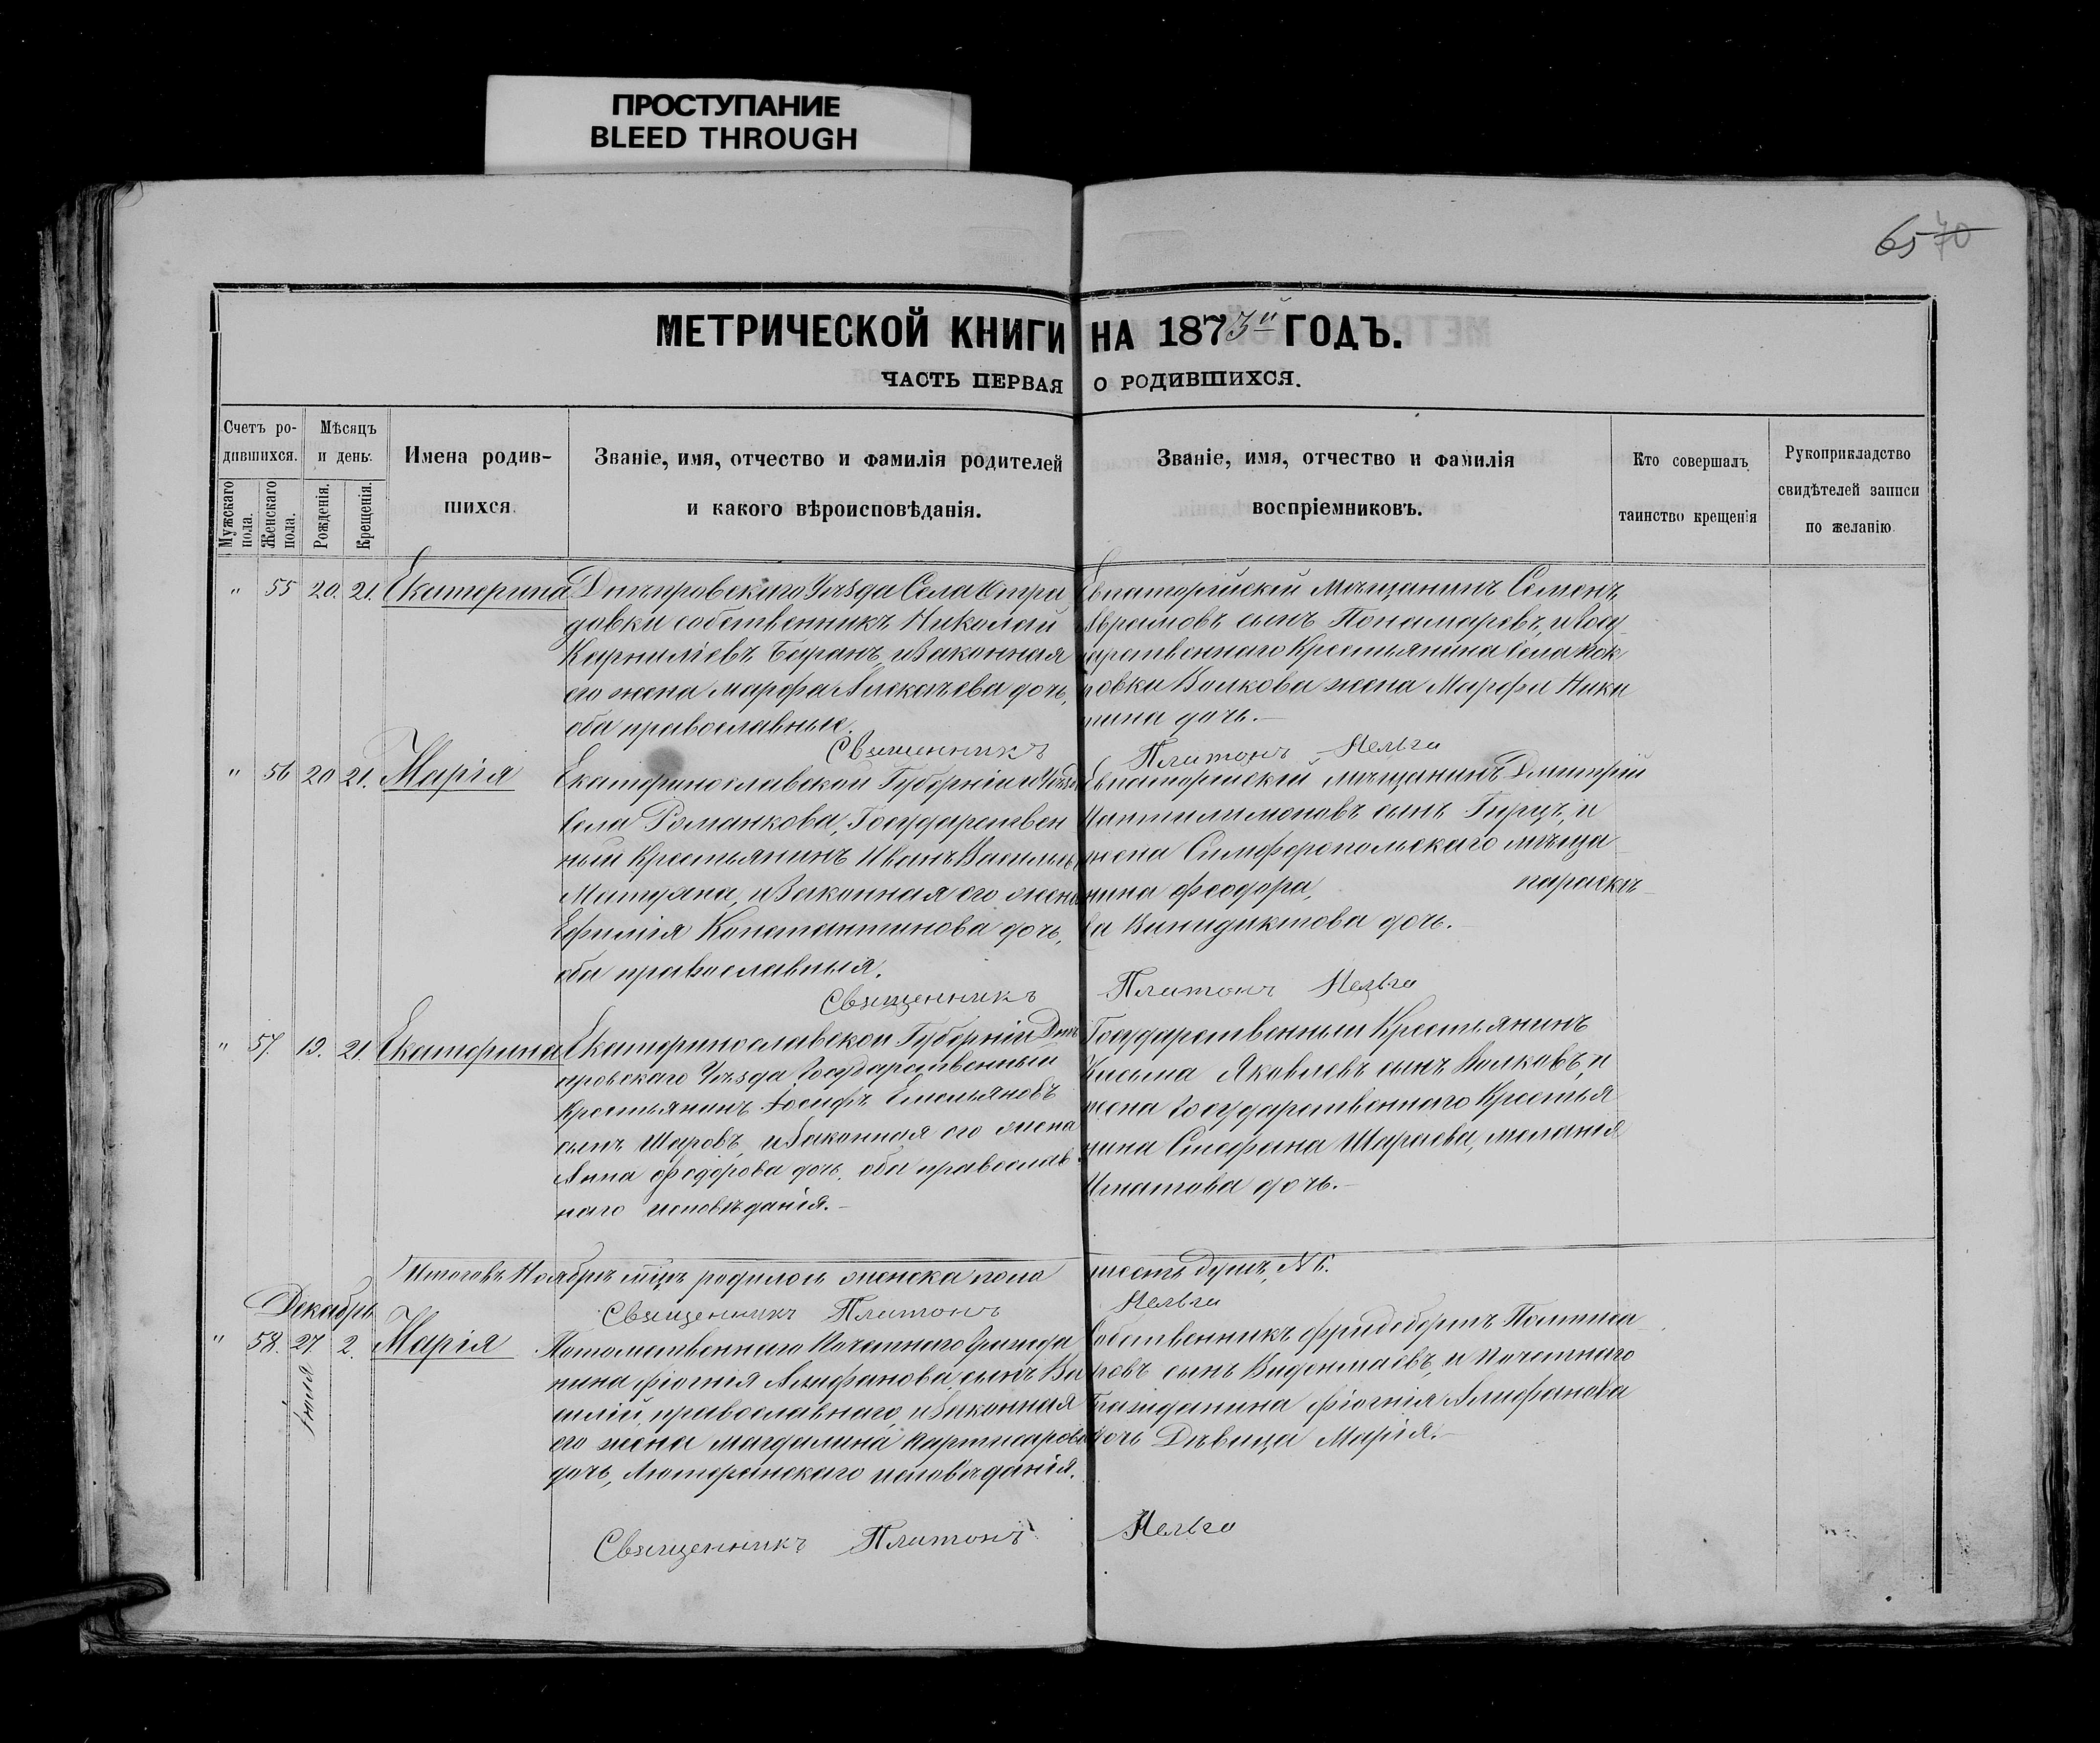 ПРОСТУПАНИЕ
BLEED THROUGH
65 70
МЕТРИЧЕСКОЙ КНИГИ НА 1873й ГОДЪ.
ЧАСТЬ ПЕРВАЯ О РОДИВШИХСЯ.
Счетъ родившихся.
Мужскаго пола.
Женскаго пола.
Мѣсяцъ и день.
Рожденія.
Крещенія.
Имена родившихся.
Званіе, имя, отчество и фамилія родителей
и какого вѣроисповѣданія.
Званіе, имя, отчество и фамилія
воспріемниковъ.
Кто совершалъ
таинство крещенія
Рукоприкладство
свидѣтелей записи
по желанію.
" 55 20. 21. Екатерина
Днѣпровскаго Уѣзда Села
собственникъ Николай
Карниліевъ Баранъ, и Законная
его жена Марфа Алексѣева дочь,
оба православные.
Евпаторійскій Мѣщанинъ Семенъ
Авраимовъ сынъ Понамаревъ, и Госу
дарственнаго Крестьянина Села
Волкова жена Марфа Ники
тина дочь.
Священникъ Платонъ
" 56 20 21. Марія
Екатеринославской Губерніи и Уѣзда
Села Романкова, Государствен
ный Крестьянинъ Иванъ Васильевъ
и Законная его жена
Ефимія Константинова дочь,
оба православныя.
Евпаторійскій мѣщанинъ Дмитрій
сынъ и
жена Симферопольскаго мѣща
нина Феодора, параскѣ
ва дочь.
Священникъ Платонъ
" 57. 19. 21. Екатерина
Екатеринославской Губерніи Днѣ
провскаго Уѣзда Государственный
Крестьянинъ Іосифъ Емельяновъ
сынъ Шаровъ, и Законная его жена
Анна Федорова дочь, оба православ
наго исповѣданія.
Государственный Крестьянинъ
Яковлевъ сынъ Волковъ, и
жена Государственнаго Крестья
нина Стефана Шараева, меланія
Игнатова дочь.
Итого въ Ноябрѣ мцѣ родилось женска пола шесть душъ, №6.
Священникъ Платонъ
Декабрь
" 58. 27 Іюля 2. Марія
Потомственнаго Почетнаго Гражда
нина Алифанова, сынъ Ва
силій, православнаго, и Законная
его жена магдалина
дочь, Лютеранскаго исповѣданія.
Собственникъ
сынъ и Почетнаго
Гражданина Алифанова
дочь Дѣвица Марія.
Священникъ Платонъ